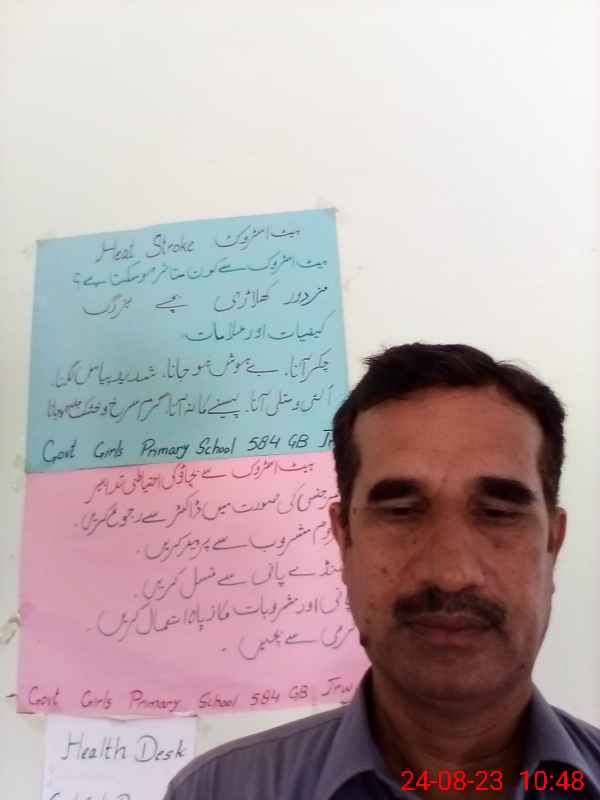 ہیٹ اسٹروک Heat Stroke
ہیٹ اسٹروک سے کون متاثر ہو سکتا ہے؟
مزدور کھلاڑی بچے بزرگ
کیفیات اور علامات
چکر آنا۔ بے ہوش ہو جانا۔ شدید پیاس لگنا۔
الٹی و متلی آنا۔ پسینے کا نہ آنا۔ گرم سرخ و خشک جلد ہو جانا
Govt Girls Primary School 584 GB
ہیٹ اسٹروک سے بچاؤ کی احتیاطی تدابیر
کی صورت میں ڈاکٹر سے رجوع کریں۔
مشروب سے پرہیز کریں۔
پانی سے غسل کریں۔
پانی اور مشروبات کا زیادہ استعمال کریں۔
گرمی سے بچیں۔
Govt Girls Primary School 584 GB Jrw
Health Desk
24-08-23 10:48